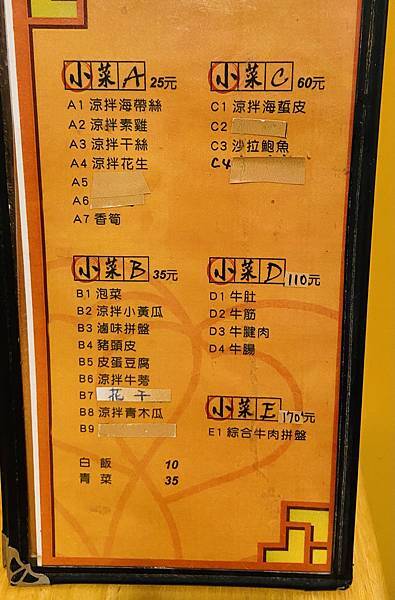 小菜A 25元
A1 涼拌海帶絲
A2 涼拌素雞
A3 涼拌干絲
A4 涼拌花生
A5
A6
A7 香筍
小菜B 35元
B1 泡菜
B2 涼拌小黃瓜
B3 滷味拼盤
B4 豬頭皮
B5 皮蛋豆腐
B6 涼拌牛蒡
B7 花干
B8 涼拌青木瓜
B9
白飯 10
青菜 35
小菜C 60元
C1 涼拌海蜇皮
C2
C3 沙拉鮑魚
C4
小菜D 110元
D1 牛肚
D2 牛筋
D3 牛腱肉
D4 牛腸
小菜E 170元
E1 綜合牛肉拼盤